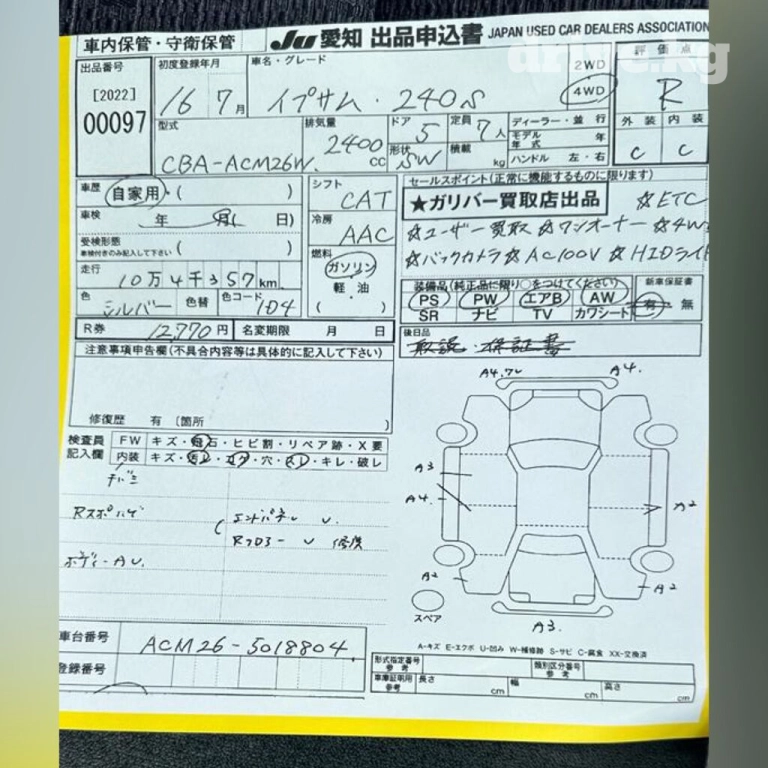 車内保管・守衛保管 JU 愛知 出品申込書 JAPAN USED CAR DEALERS ASSOCIATION
drive.kg
出品番号 初度登録年月 車名・グレード 2WD 4WD 評価点
[2022] 16 7月 イプサム・240S R
00097
型式 排気量 ドア 定員 ディーラー・並行 外装 内装
CBA-ACM26W. 2400 cc 5 7人 モデル年式 年 C C
形状 5W 積載 kg ハンドル 左・右
車歴 自家用・( ) シフト CAT
セールスポイント(正常に機能するものに限ります)
★ガリバー買取店出品 ☆ETC
☆ユーザー買取 ☆ワンオーナー ☆4W
☆バックカメラ ☆AC100V ☆HIDライト
車検 年 月( 日) 冷房 AAC
受検形態 車検付きのみ記入して下さい ( )
燃料 ガソリン 軽・油 ( )
走行 10万4千357km
色 シルバー 色替 色コード 1D4
装備品(純正品に限り○をつけてください) 新車保証書
PS PW エアB AW 有・無
SR ナビ TV カワシート
R券 12,770円 名変期限 月 日
後日品 取説・保証書
注意事項申告欄(不具合内容等は具体的に記入して下さい)
修復歴 有 〔箇所 〕
検査員記入欄 FW キズ・飛石・ヒビ割・リペア跡・X要
内装 キズ・汚レ・コゲ・穴・スレ・キレ・破レ
エンドパネル U.
Rフロアー U 修復
ボディーAU.
A4. A4.
A3
A4.
A2
A2
A2
A3.
スペア
A-キズ E-エクボ U-凹み W-補修跡 S-サビ C-腐食 XX-交換済
車台番号 ACM26-5018804
登録番号
形式指定番号 参考 類別区分番号 参考
車庫証明用 参考 長さ cm 幅 cm 高さ cm